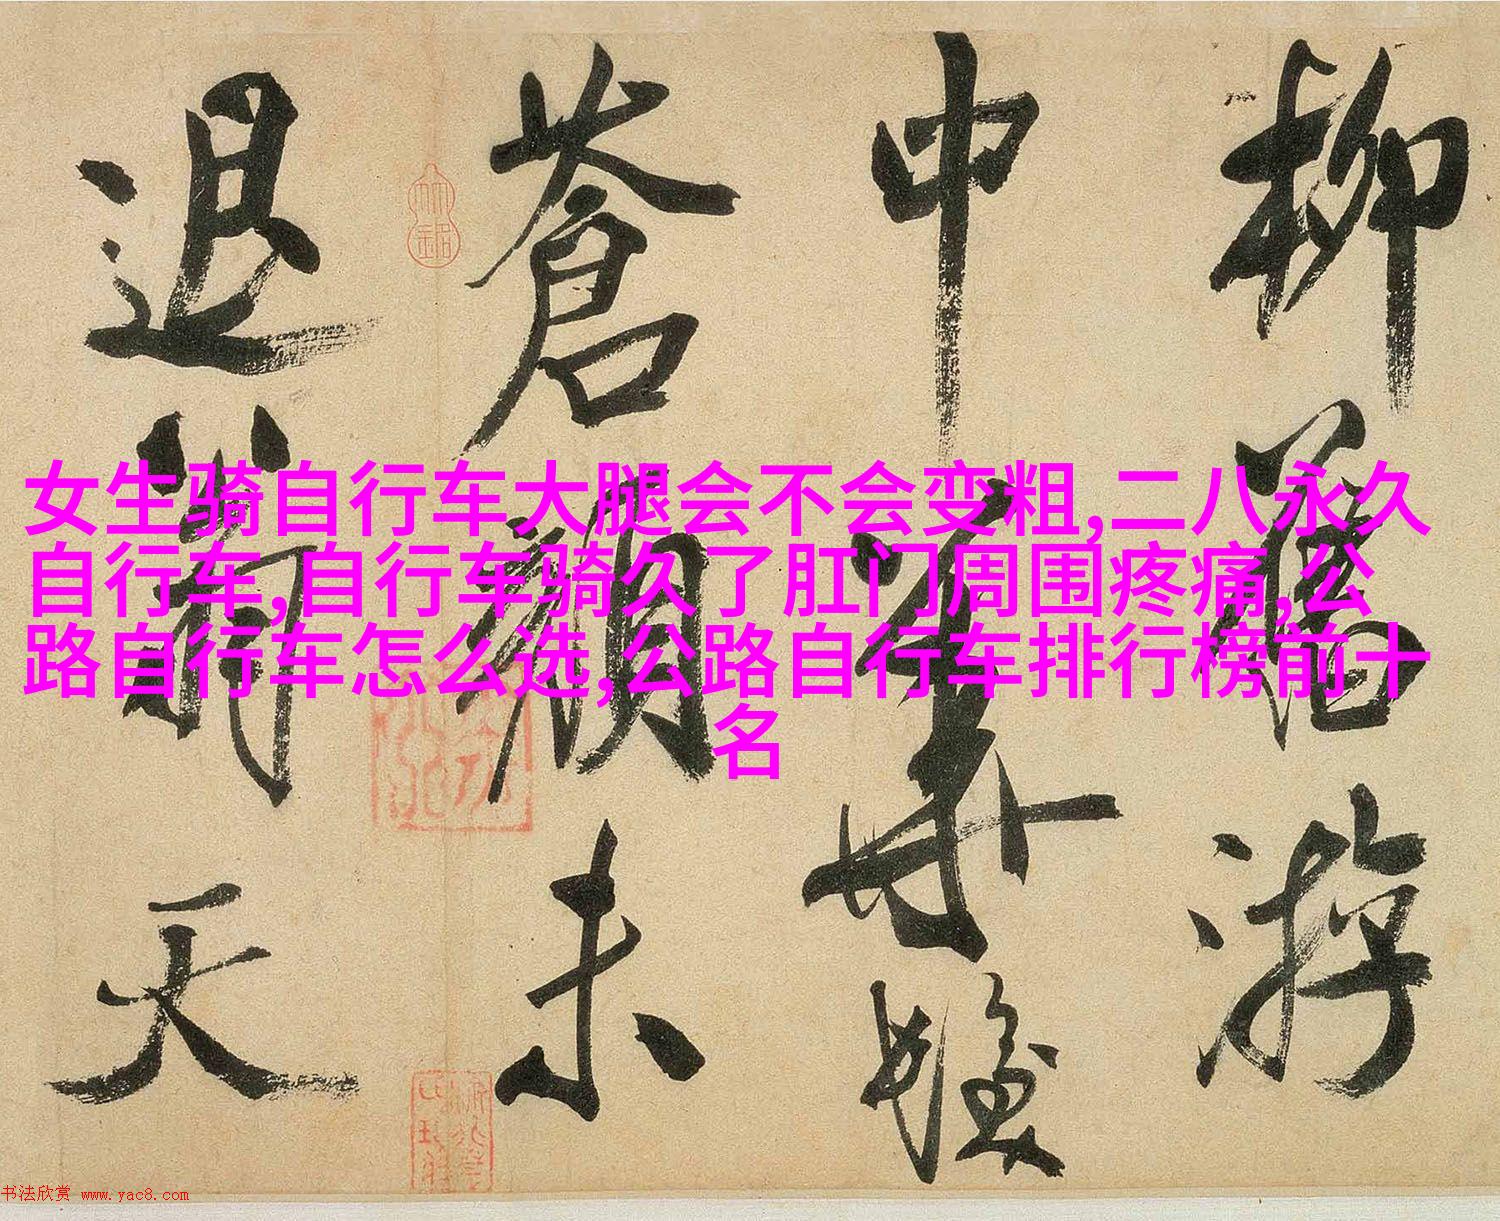 女生骑自行车大腿会不会变粗,二八永久
自行车,自行车骑久了肛门周围疼痛,公
路自行车怎么选,公路自行车排行榜前十
名
柳舊游
中
蒼顏未
退
天
书法欣赏 www.yac8.com